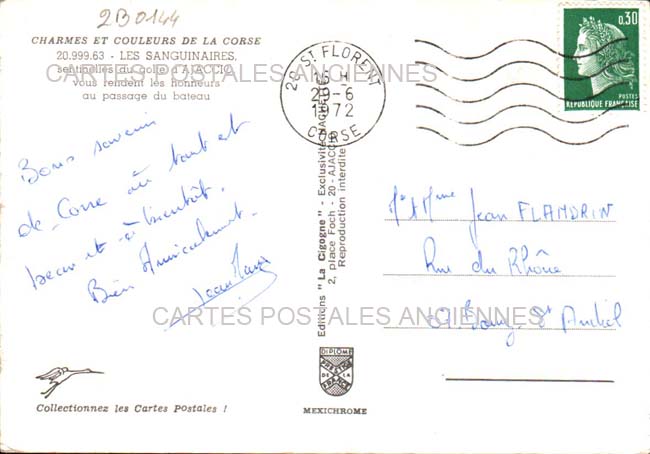 2B0144
CHARMES ET COULEURS DE LA CORSE
20.999.63 - LES SANGUINAIRES,
sentinelles du golfe d'AJACCIO
vous rendent les honneurs
au passage du bateau
CARTES POSTALES ANCIENNES
20 - ST FLORENT
15 H
29-6
1972
CORSE
0,30
POSTES
RÉPUBLIQUE FRANÇAISE
Bons souvenirs
de Corse où tout est
beau et à bientôt.
Bien Amicalement.
Editions "La Cigogne" - Exclusivité HACHETTE
2, place Foch - 20 - AJACCIO
Reproduction interdite
Mr et Mme Jean FLANDRIN
Rue du Rhône
St
CARTES POSTALES ANCIENNES
DIPLOME
PRESTIGE
DE LA
FRANCE
MEXICHROME
Collectionnez les Cartes Postales !